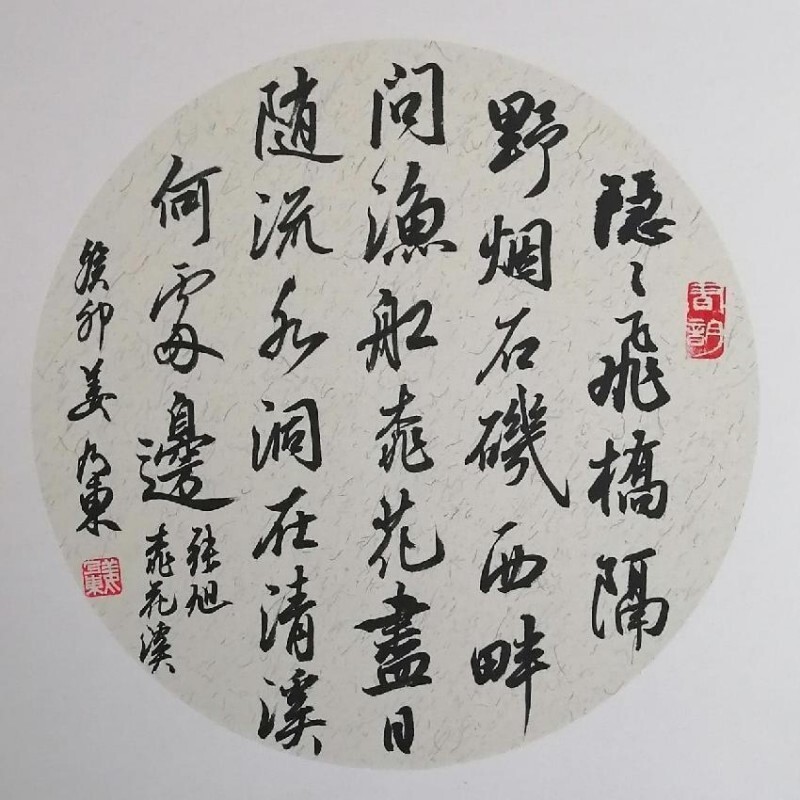 隐々飛橋隔
野烟石磯西畔
问漁船桃花盡日
随流水洞在清溪
何處邊
張旭
桃花溪
癸卯姜乃東
姜乃東